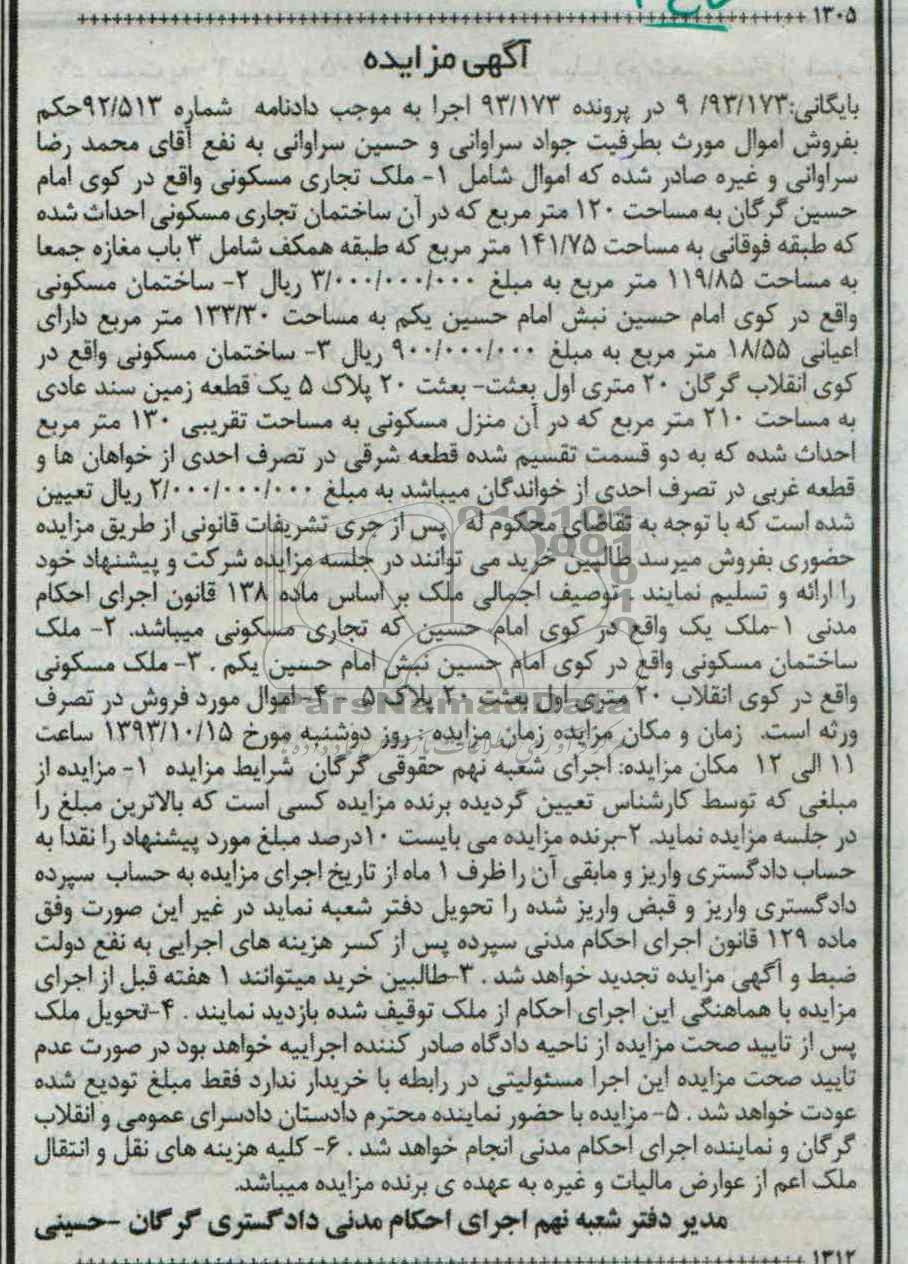 ۱۳۰۵
آگهی مزایده
بایگانی:۹۳/۱۷۳/ ۹ در پرونده ۹۳/۱۷۳ اجرا به موجب دادنامه شماره ۹۲/۵۱۳حکم
بفروش اموال مورث بطرفیت جواد سراوانی و حسین سراوانی به نفع آقای محمد رضا
سراوانی و غیره صادر شده که اموال شامل ۱- ملک تجاری مسکونی واقع در کوی امام
حسین گرگان به مساحت ۱۲۰ متر مربع که در آن ساختمان تجاری مسکونی احداث شده
که طبقه فوقانی به مساحت ۱۴۱/۷۵ متر مربع که طبقه همکف شامل ۳ باب مغازه جمعا
به مساحت ۱۱۹/۸۵ متر مربع به مبلغ ۳/۰۰۰/۰۰۰/۰۰۰ ریال ۲- ساختمان مسکونی
واقع در کوی امام حسین نبش امام حسین یکم به مساحت ۱۳۳/۳۰ متر مربع دارای
اعیانی ۱۸/۵۵ متر مربع به مبلغ ۹۰۰/۰۰۰/۰۰۰ ریال ۳- ساختمان مسکونی واقع در
کوی انقلاب گرگان ۲۰ متری اول بعثت- بعثت ۲۰ پلاک ۵ یک قطعه زمین سند عادی
به مساحت ۲۱۰ متر مربع که در آن منزل مسکونی به مساحت تقریبی ۱۳۰ متر مربع
احداث شده که به دو قسمت تقسیم شده قطعه شرقی در تصرف احدی از خواهان ها و
قطعه غربی در تصرف احدی از خواندگان میباشد به مبلغ ۲/۰۰۰/۰۰۰/۰۰۰ ریال تعیین
شده است که با توجه به تقاضای محکوم له پس از جری تشریفات قانونی از طریق مزایده
حضوری بفروش میرسد طالبین خرید می توانند در جلسه مزایده شرکت و پیشنهاد خود
را ارائه و تسلیم نمایند . توصیف اجمالی ملک بر اساس ماده ۱۳۸ قانون اجرای احکام
مدنی ۱-ملک یک واقع در کوی امام حسین که تجاری مسکونی میباشد. ۲- ملک
ساختمان مسکونی واقع در کوی امام حسین نبش امام حسین یکم . ۳- ملک مسکونی
واقع در کوی انقلاب ۲۰ متری اول بعثت ۲۰ پلاک ۵ ۴- اموال مورد فروش در تصرف
ParsNamadData
ورثه است. زمان و مکان مزایده زمان مزایده : روز دوشنبه مورخ ۱۳۹۳/۱۰/۱۵ ساعت
۱۱ الی ۱۲ مکان مزایده: اجرای شعبه نهم حقوقی گرگان شرایط مزایده ۱- مزایده از
مبلغی که توسط کارشناس تعیین گردیده برنده مزایده کسی است که بالاترین مبلغ را
در جلسه مزایده نماید. ۲-برنده مزایده می بایست ۱۰درصد مبلغ مورد پیشنهاد را نقدا به
حساب دادگستری واریز و مابقی آن را ظرف ۱ ماه از تاریخ اجرای مزایده به حساب سپرده
دادگستری واریز و قبض واریز شده را تحویل دفتر شعبه نماید در غیر این صورت وفق
ماده ۱۲۹ قانون اجرای احکام مدنی سپرده پس از کسر هزینه های اجرایی به نفع دولت
ضبط و آگهی مزایده تجدید خواهد شد . ۳-طالبین خرید میتوانند ۱ هفته قبل از اجرای
مزایده با هماهنگی این اجرای احکام از ملک توقیف شده بازدید نمایند . ۴-تحویل ملک
پس از تایید صحت مزایده از ناحیه دادگاه صادر کننده اجراییه خواهد بود در صورت عدم
تایید صحت مزایده این اجرا مسئولیتی در رابطه با خریدار ندارد فقط مبلغ تودیع شده
عودت خواهد شد . ۵- مزایده با حضور نماینده محترم دادستان دادسرای عمومی و انقلاب
گرگان و نماینده اجرای احکام مدنی انجام خواهد شد . ۶- کلیه هزینه های نقل و انتقال
ملک اعم از عوارض مالیات و غیره به عهده ی برنده مزایده میباشد.
مدیر دفتر شعبه نهم اجرای احکام مدنی دادگستری گرگان -حسینی
۱۳۱۲